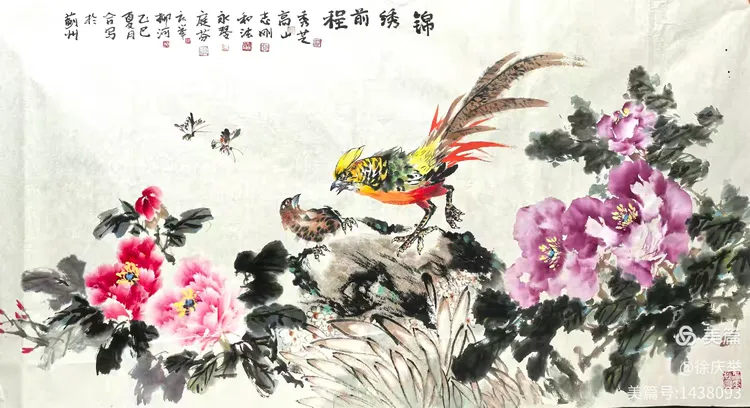 锦绣前程
秀芝
高山
志刚
庭芬
柳河
乙巳
夏月
合写
於
蓟州
美篇
@徐庆举
美篇号:1438093